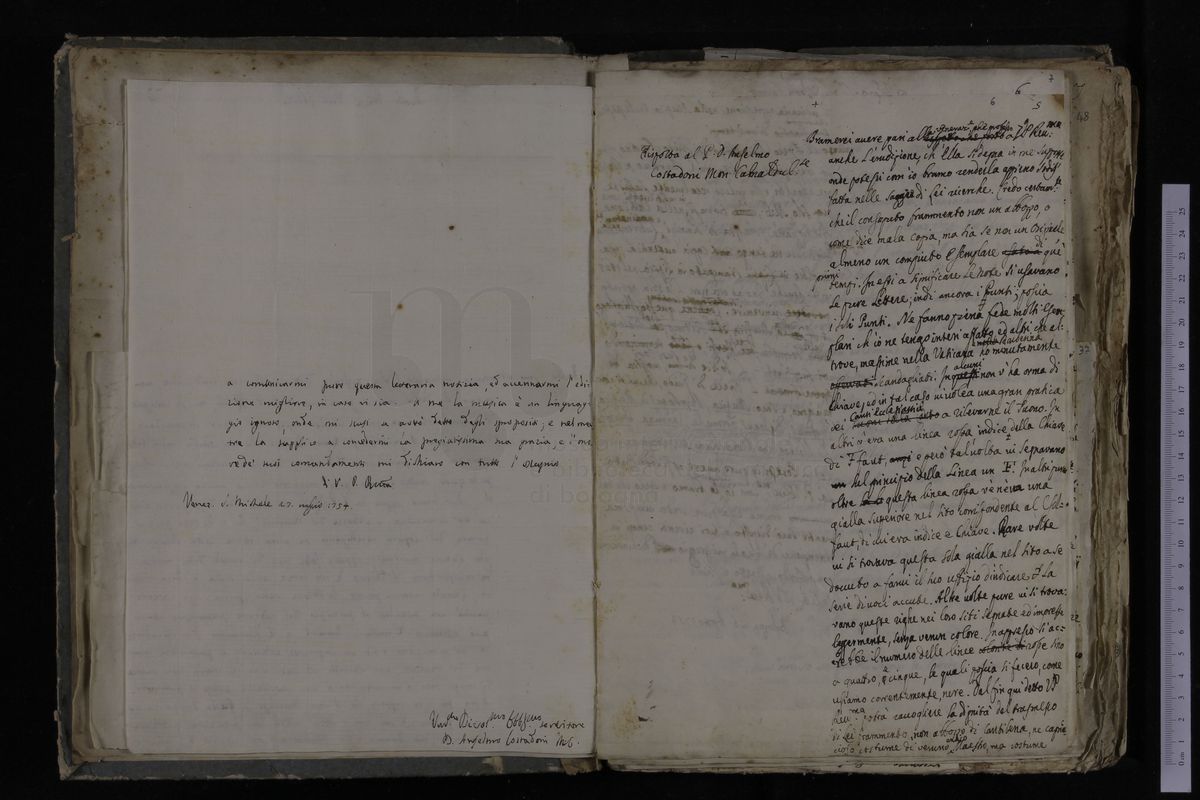 a comunicarmi pure questa letteraria notizia, ed accennarmi l'edi-
zione migliore, in caso vi sia. A me la musica è un linguag-
gio ignoto, onde mi scusi se avrò detto degli spropositi; e nel men-
tre la supplico a concedermi la pregiatissima sua grazia, e l'ono
re de' suoi comandamenti mi dichiaro con tutto l'ossequio
Di V. P. Rma
S. Michele 27. 1754.
Servitore
D. Anselmo Costadoni
7
6
6
5
Risposta al P. D. Anselmo
Costadoni Mon. Camald
Bramerei avere pari
anche l'erudizione, ch'Ella si degna in me supporre
onde potessi com'io bramo renderla appieno sodis
fatta nelle sagge di Lei ricerche. Credo certam.te
che il consaputo frammento non un abbozzo, o
come dice mala copia, ma sia se non un Originale
almeno un compiuto Esemplare di que'
primi
tempi. In essi a significare le note si usavano
le pure Lettere, indi ancora i Punti, poscia
i soli Punti. Ne fanno piena fede molti Esem
plari ch'io ne tengo interi affatto ed altri che al-
trove, massime nella Vaticana ho minutamente
scandagliati. In alcuni non v'ha orma di
Chiave, ed in tal caso ci volea una gran pratica
a rilevarne il suono. In
altri v'era una linea rossa indice della Chiave
di F faut, e però talvolta vi segnavano
nel principio della Linea un F. In altri pure
oltre questa linea rossa v'era una
gialla superiore nel sito corrispondente al C sol-
faut, di cui era indice e Chiave. Rare volte
vi si trovava questa sola gialla nel sito a se
dovuto a farvi il suo uffizio d'indicare La
serie di voci accube. Altre volte pure vi si trova-
vano queste righe nei loro siti segnate ed impresse
leggermente, senza verun colore. In appresso si ac-
crebbe il numero delle linee rosse sino
a quattro, e cinque, le quali poscia si fecero, come
usiamo correntemente, nere. Dal fin qui detto V. P.
potrà raccogliere la dignità del trasmesso
frammento, non abbozzo di Cantilena, ne capric
cioso costume di veruno Maestro, ma costume